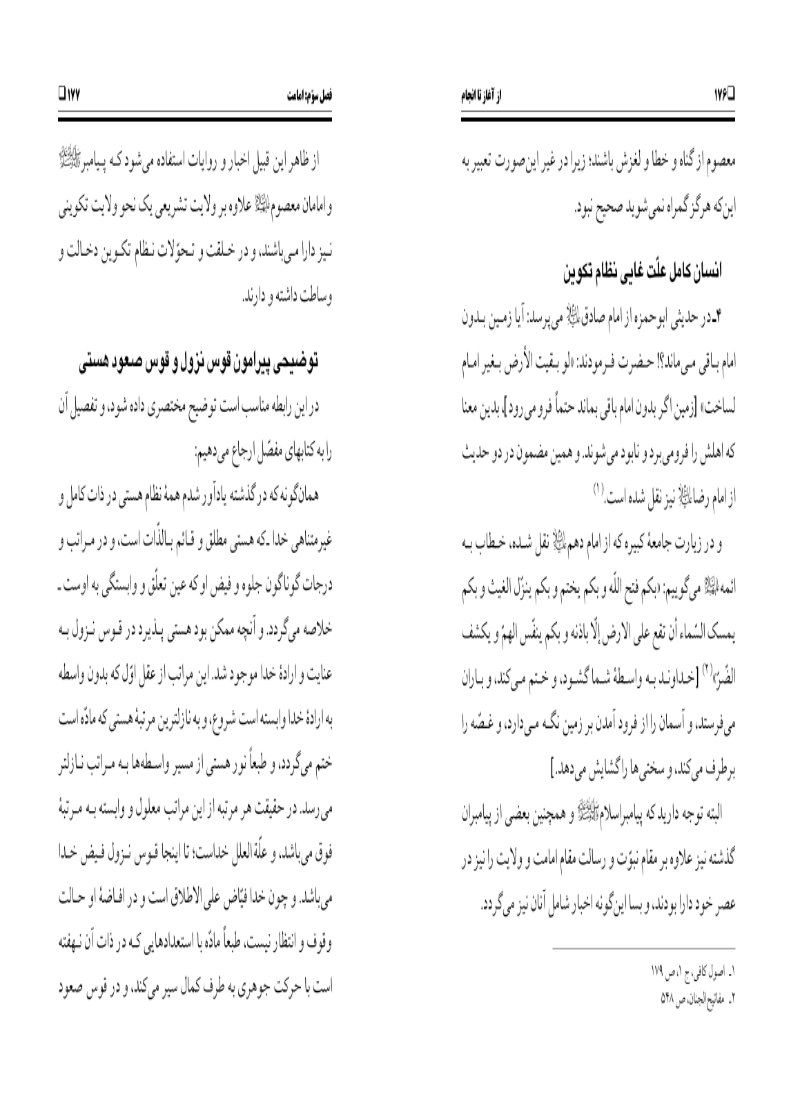 ❏۱۷۶ از آغاز تا انجام
معصوم از گناه و خطا و لغزش باشند؛ زیرا در غیر این‌صورت تعبیر به
این‌که هرگز گمراه نمی‌شوید صحیح نبود.
انسان کامل علّت غایی نظام تکوین
۴ـ در حدیثی ابوحمزه از امام صادق علیه السلام می‌پرسد: آیا زمـین بـدون
امام بـاقی مـی‌ماند؟! حـضرت فـرمودند: «لو بـقیت الأرض بـغیر امـام
لساخت» [زمین اگر بدون امام باقی بماند حتماً فرو می‌رود]، بدین معنا
که اهلش را فرومی‌برد و نابود می‌شوند. و همین مضمون در دو حدیث
از امام رضا علیه السلام نیز نقل شده است.(۱)
و در زیارت جامعهٔ کبیره که از امام دهم علیه السلام نقل شـده، خـطاب بـه
ائمه علیهم السلام می‌گوییم: «بکم فتح اللّه و بکم یختم و بکم ینزّل الغیث و بکم
یمسک السّماء أن تقع علی الارض إلّا باذنه و بکم ینفّس الهمّ و یکشف
الضّرّ»(۲) [خـداونـد بـه واسـطهٔ شـما گشـود، و خـتم مـی‌کند، و بـاران
می‌فرستد، و آسمان را از فرود آمدن بر زمین نگـه مـی‌دارد، و غـصّه را
برطرف می‌کند، و سختی‌ها را گشایش می‌دهد.]
البته توجه دارید که پیامبراسلام ﷺ و همچنین بعضی از پیامبران
گذشته نیز علاوه بر مقام نبوّت و رسالت مقام امامت و ولایت را نیز در
عصر خود دارا بودند، و بسا این‌گونه اخبار شامل آنان نیز می‌گردد.
۱ـ اصول کافی، ج ۱، ص ۱۷۹
۲ـ مفاتیح‌الجنان، ص ۵۴۸
فصل سوّم: امامت ۱۷۷❏
از ظاهر این قبیل اخبار و روایات استفاده می‌شود کـه پـیامبر ﷺ
و امامان معصوم علیهم السلام علاوه بر ولایت تشریعی یک نحو ولایت تکوینی
نـیز دارا مـی‌باشند، و در خـلقت و تـحوّلات نـظام تکـوین دخـالت و
وساطت داشته و دارند.
توضیحی پیرامون قوس نزول و قوس صعود هستی
در این رابطه مناسب است توضیح مختصری داده شود، و تفصیل آن
را به کتابهای مفصّل ارجاع می‌دهیم:
همان‌گونه که در گذشته یادآور شدم همهٔ نظام هستی در ذات کامل و
غیرمتناهی خدا ـکه هستی مطلق و قـائم بـالذّات است، و در مـراتب و
درجات گوناگون جلوه و فیض او که عین تعلّق و وابستگی به اوست ـ
خلاصه می‌گردد. و آنچه ممکن بود هستی پـذیرد در قـوس نـزول بـه
عنایت و ارادهٔ خدا موجود شد. این مراتب از عقل اوّل که بدون واسطه
به ارادهٔ خدا وابسته است شروع، و به نازلترین مرتبهٔ هستی که مادّه است
ختم می‌گردد، و طبعاً نور هستی از مسیر واسـطه‌ها بـه مـراتب نـازلتر
می‌رسد. در حقیقت هر مرتبه از این مراتب معلول و وابسته بـه مـرتبهٔ
فوق می‌باشد، و علّة‌العلل خداست؛ تا اینجا قـوس نـزول فـیض خـدا
می‌باشد. و چون خدا فیّاض علی‌الاطلاق است و در افـاضهٔ او حـالت
وقوف و انتظار نیست، طبعاً مادّه با استعدادهایی کـه در ذات آن نـهفته
است با حرکت جوهری به طرف کمال سیر می‌کند، و در قوس صعود